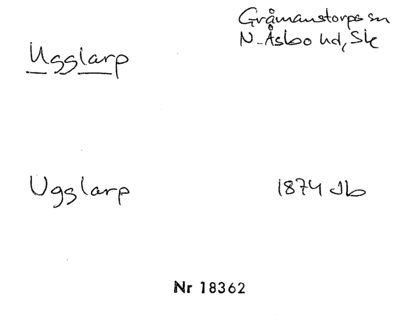 Gråmanstorps sn
N. Åsbo hd, Sk
Ugglarp
Ugglarp 1874 Jb
Nr 18362